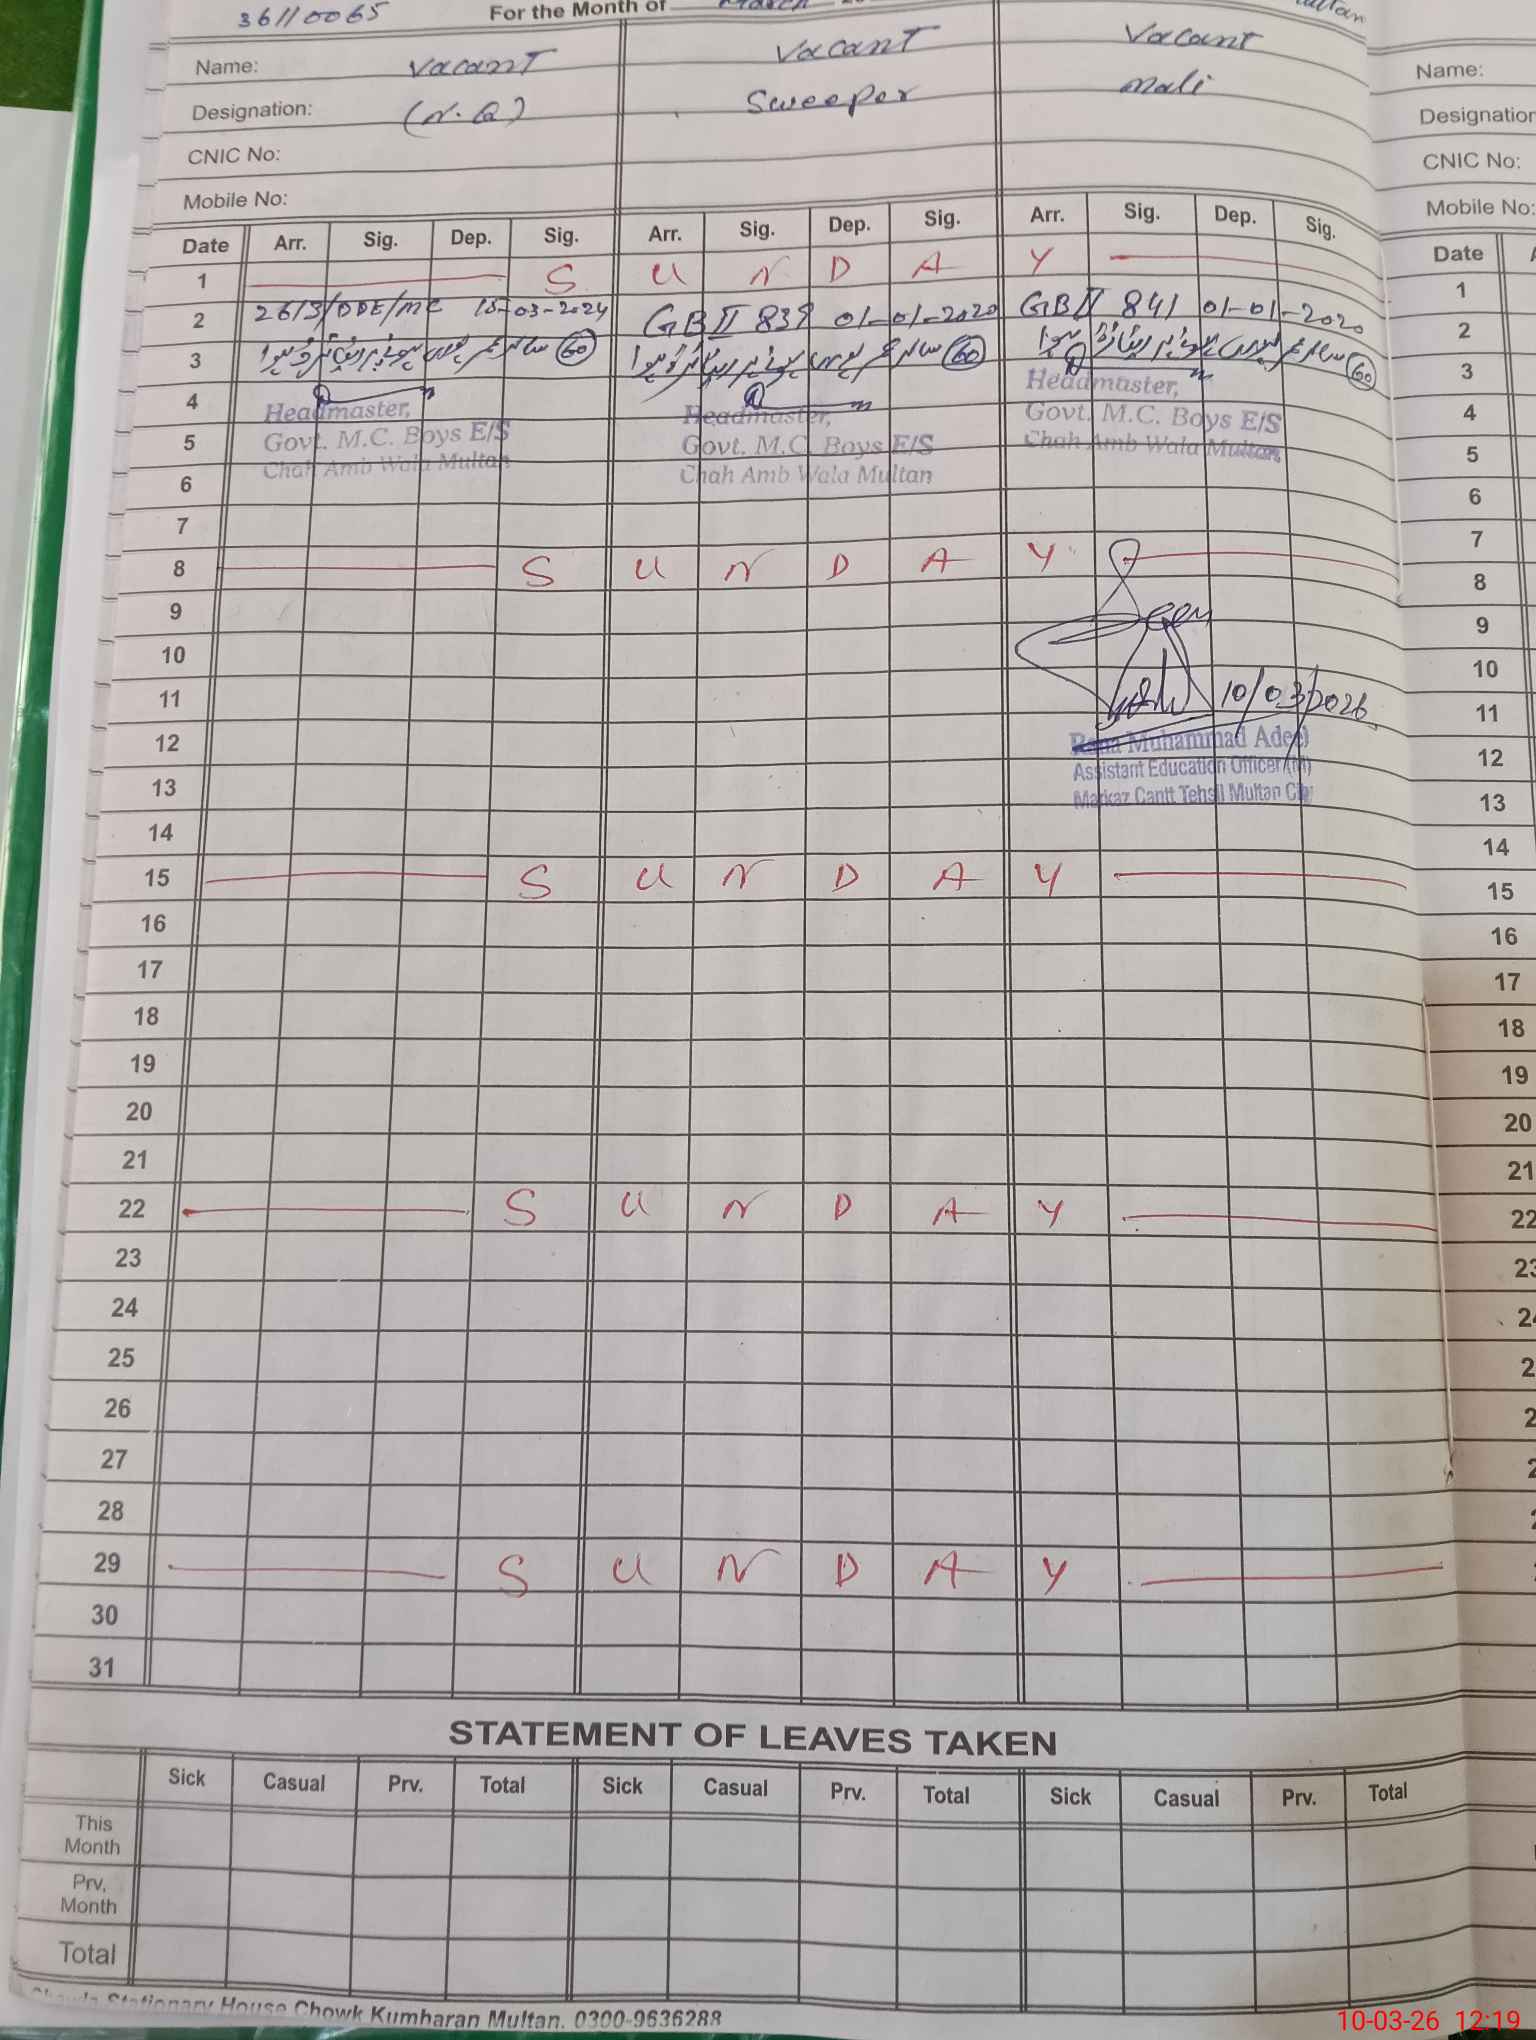 36110065 For the Month of March
Name: Vacant Vacant Vacant
Designation: (N.Q) Sweeper Mali
CNIC No:
Mobile No:
Name:
Designation
CNIC No:
Mobile No:
Date Arr. Sig. Dep. Sig. Arr. Sig. Dep. Sig. Arr. Sig. Dep. Sig. Date
1 S U N D A Y 1
2 2613/DDE/MC 15-03-2024 GB II 839 01-01-2020 GB II 841 01-01-2020 2
3 60 60 60 3
4 Headmaster, Headmaster, Headmaster, 4
5 Govt. M.C. Boys E/S Govt. M.C. Boys E/S Govt. M.C. Boys E/S 5
6 Chah Amb Wala Multan Chah Amb Wala Multan Chah Amb Wala Multan 6
7 7
8 S U N D A Y 8
9 9
10 10
11 10/03/2026 11
12 Rana Muhammad Adeel 12
Assistant Education Officer (M)
13 Markaz Cantt Tehsil Multan City 13
14 14
15 S U N D A Y 15
16 16
17 17
18 18
19 19
20 20
21 21
22 S U N D A Y 22
23 23
24
25
26
27
28
29 S U N D A Y
30
31
STATEMENT OF LEAVES TAKEN
Sick Casual Prv. Total Sick Casual Prv. Total Sick Casual Prv. Total
This
Month
Prv,
Month
Total
Stationary House Chowk Kumharan Multan. 0300-9636288
10-03-26 12:19